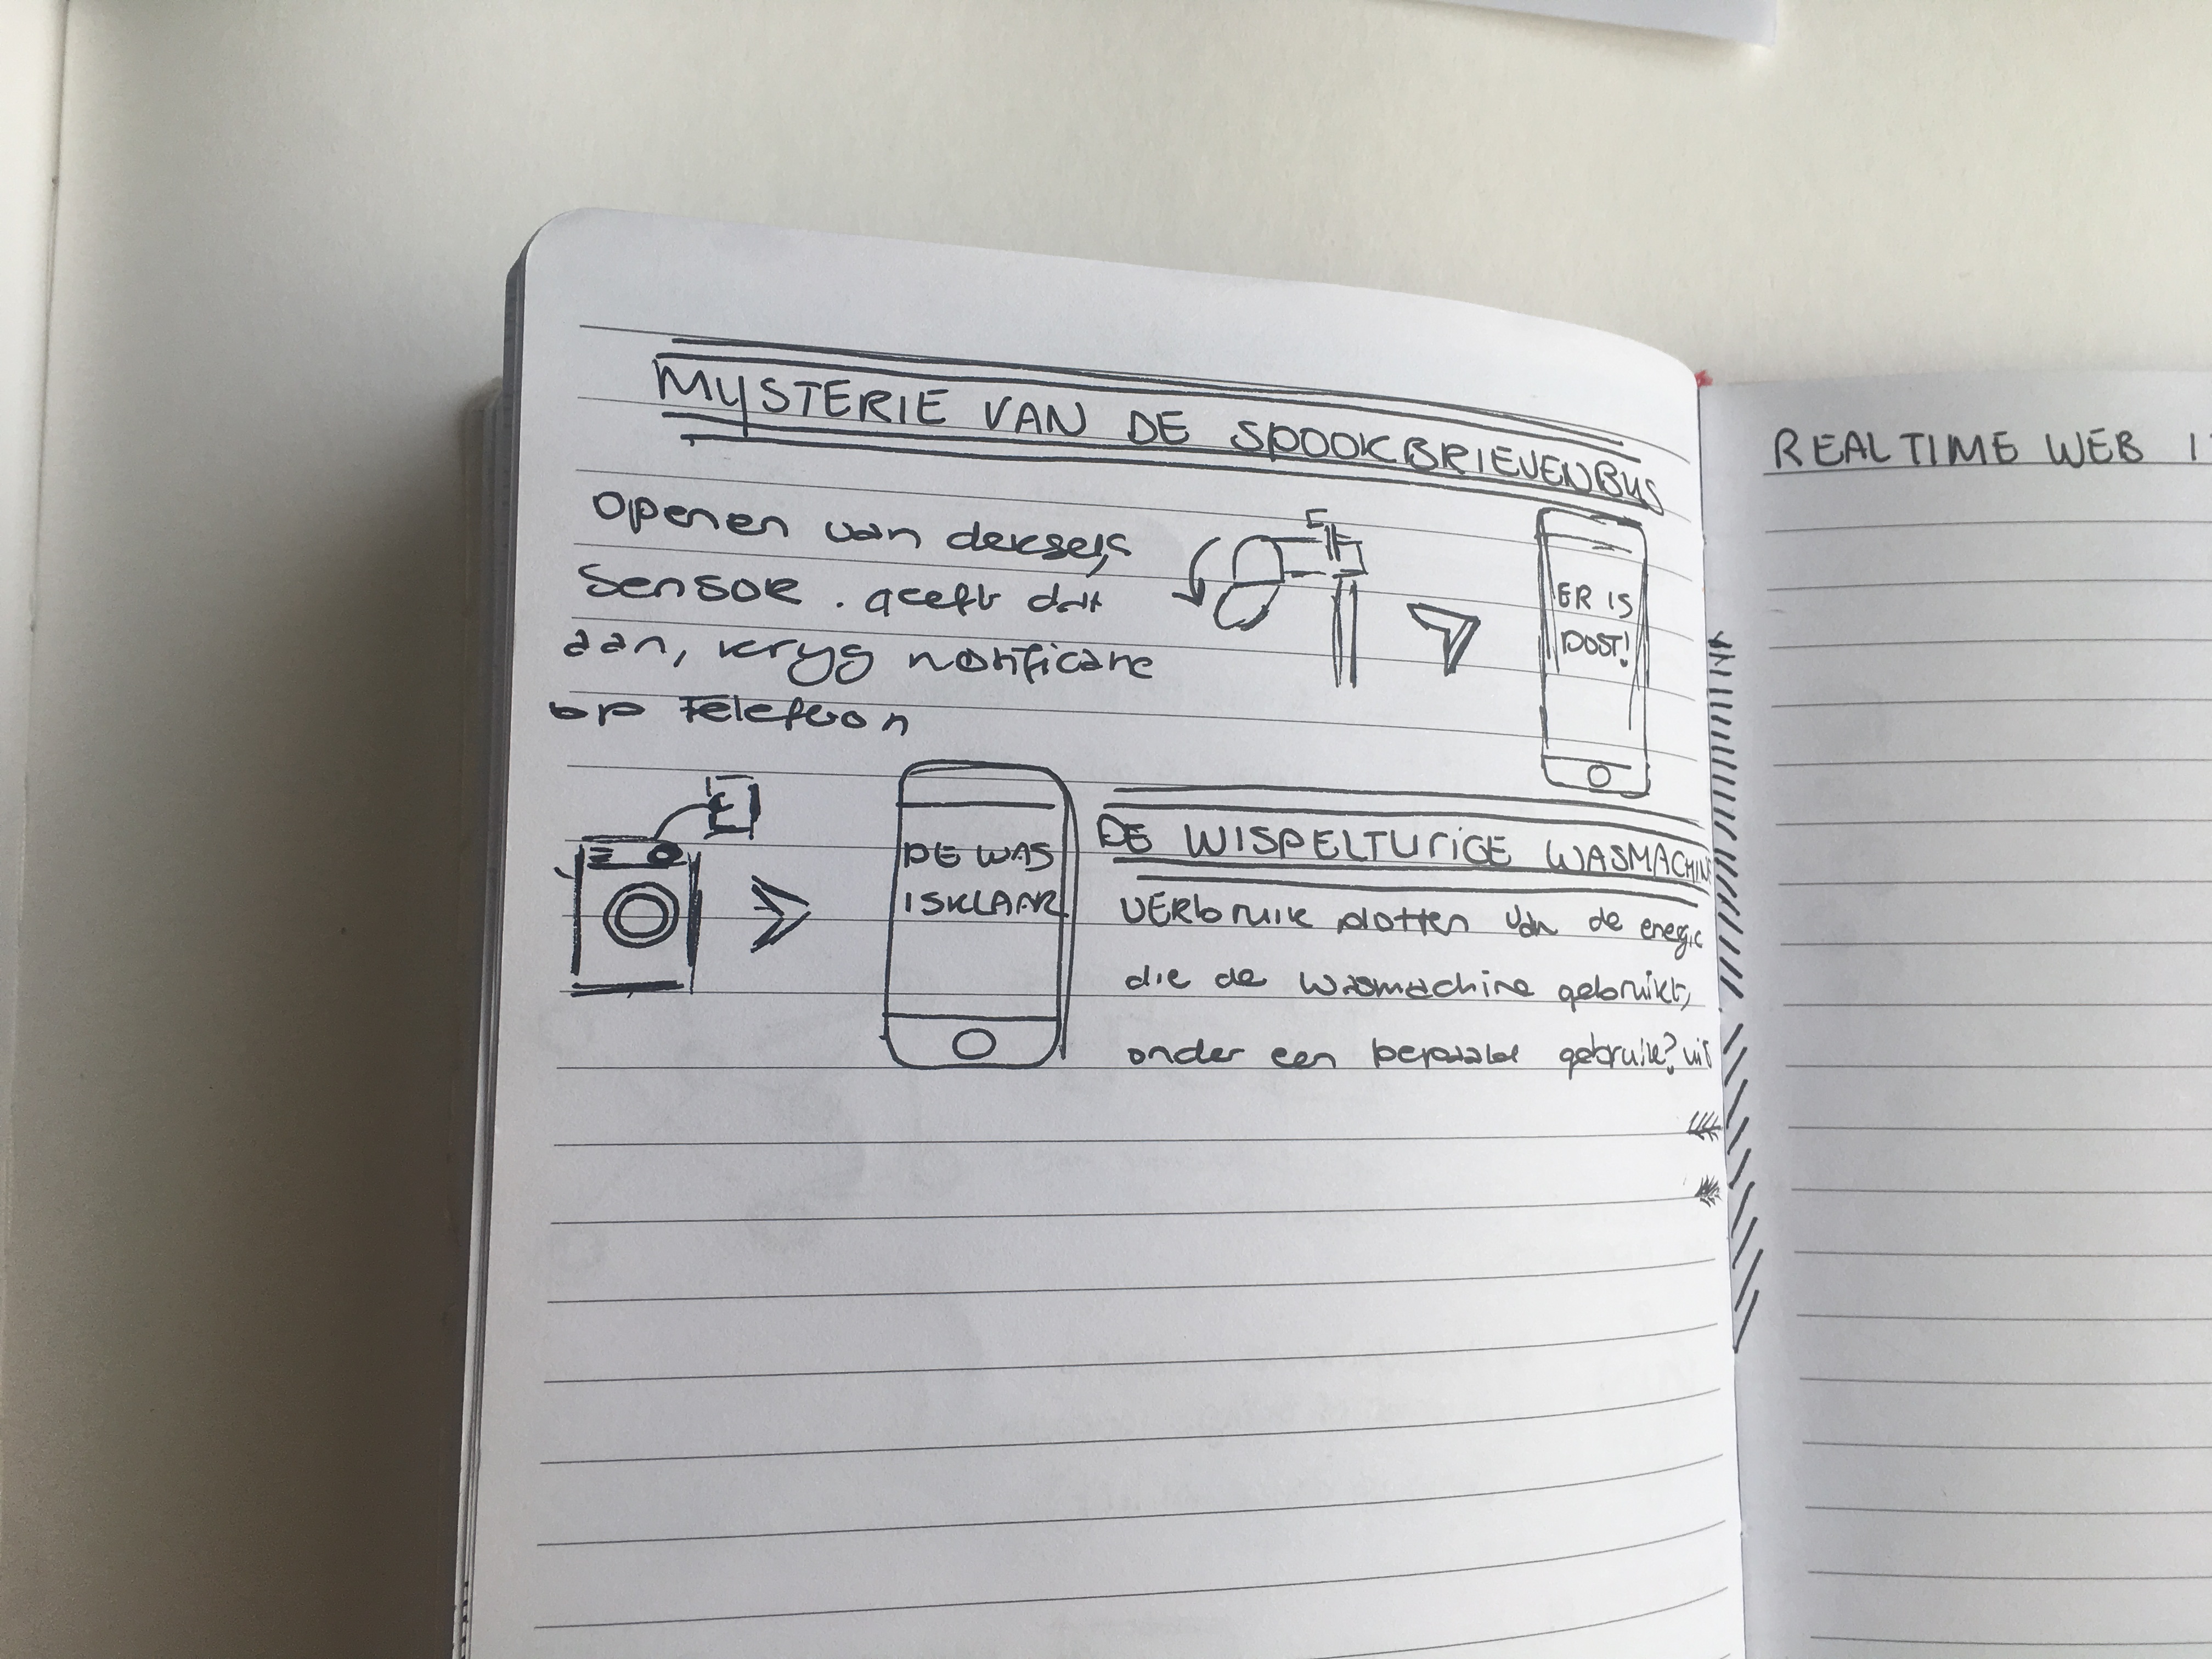 MYSTERIE VAN DE SPOOKBRIEVENBUS
Openen van deksels
Sensor. geeft dat
aan, kryg notificatie
op Telefoon
ER IS
POST!
DE WAS
IS KLAAR
DE WISPELTURIGE WASMACHINE
VERbruik plotten van de energie
die de wasmachine gebruikt,
onder een bepaald gebruik? uit
REAL TIME WEB